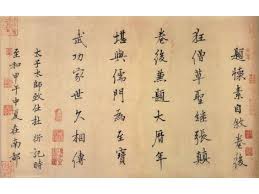 題懷素自敘卷後
狂僧草聖繼張顛
卷後兼題大曆年
堪與儒門為至寶
武功家世久相傳
太子太師致仕杜衍記時
至和甲午中夏在南都